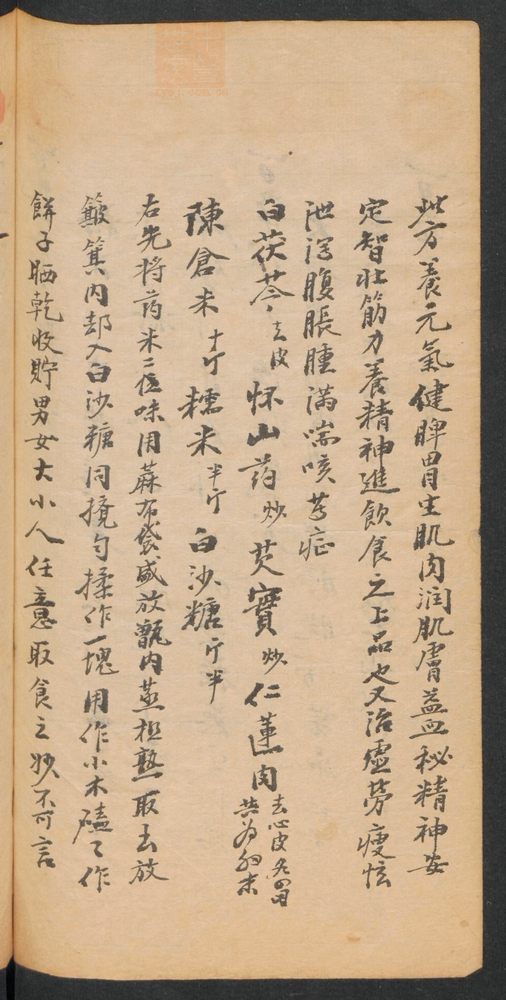 此方养元氣健脾胃生肌肉润肌膚益血秘精神安
定智壮筋力养精神進飲食之上品也又治虚劳瘦怯
泄泻腹脹腫满喘咳等症
白茯苓去皮 怀山药炒 芡實炒 仁蓮肉去心皮各四両共为細末
陳倉米十斤 糯米半斤 白沙糖斤半
右先将药米二位味用蔴布袋盛放甑内蒸極熟取去放
簸箕内却入白沙糖同搅匀揉作一塊用作小木磕〻作
餅子晒乾收貯男女大小人任意取食之妙不可言